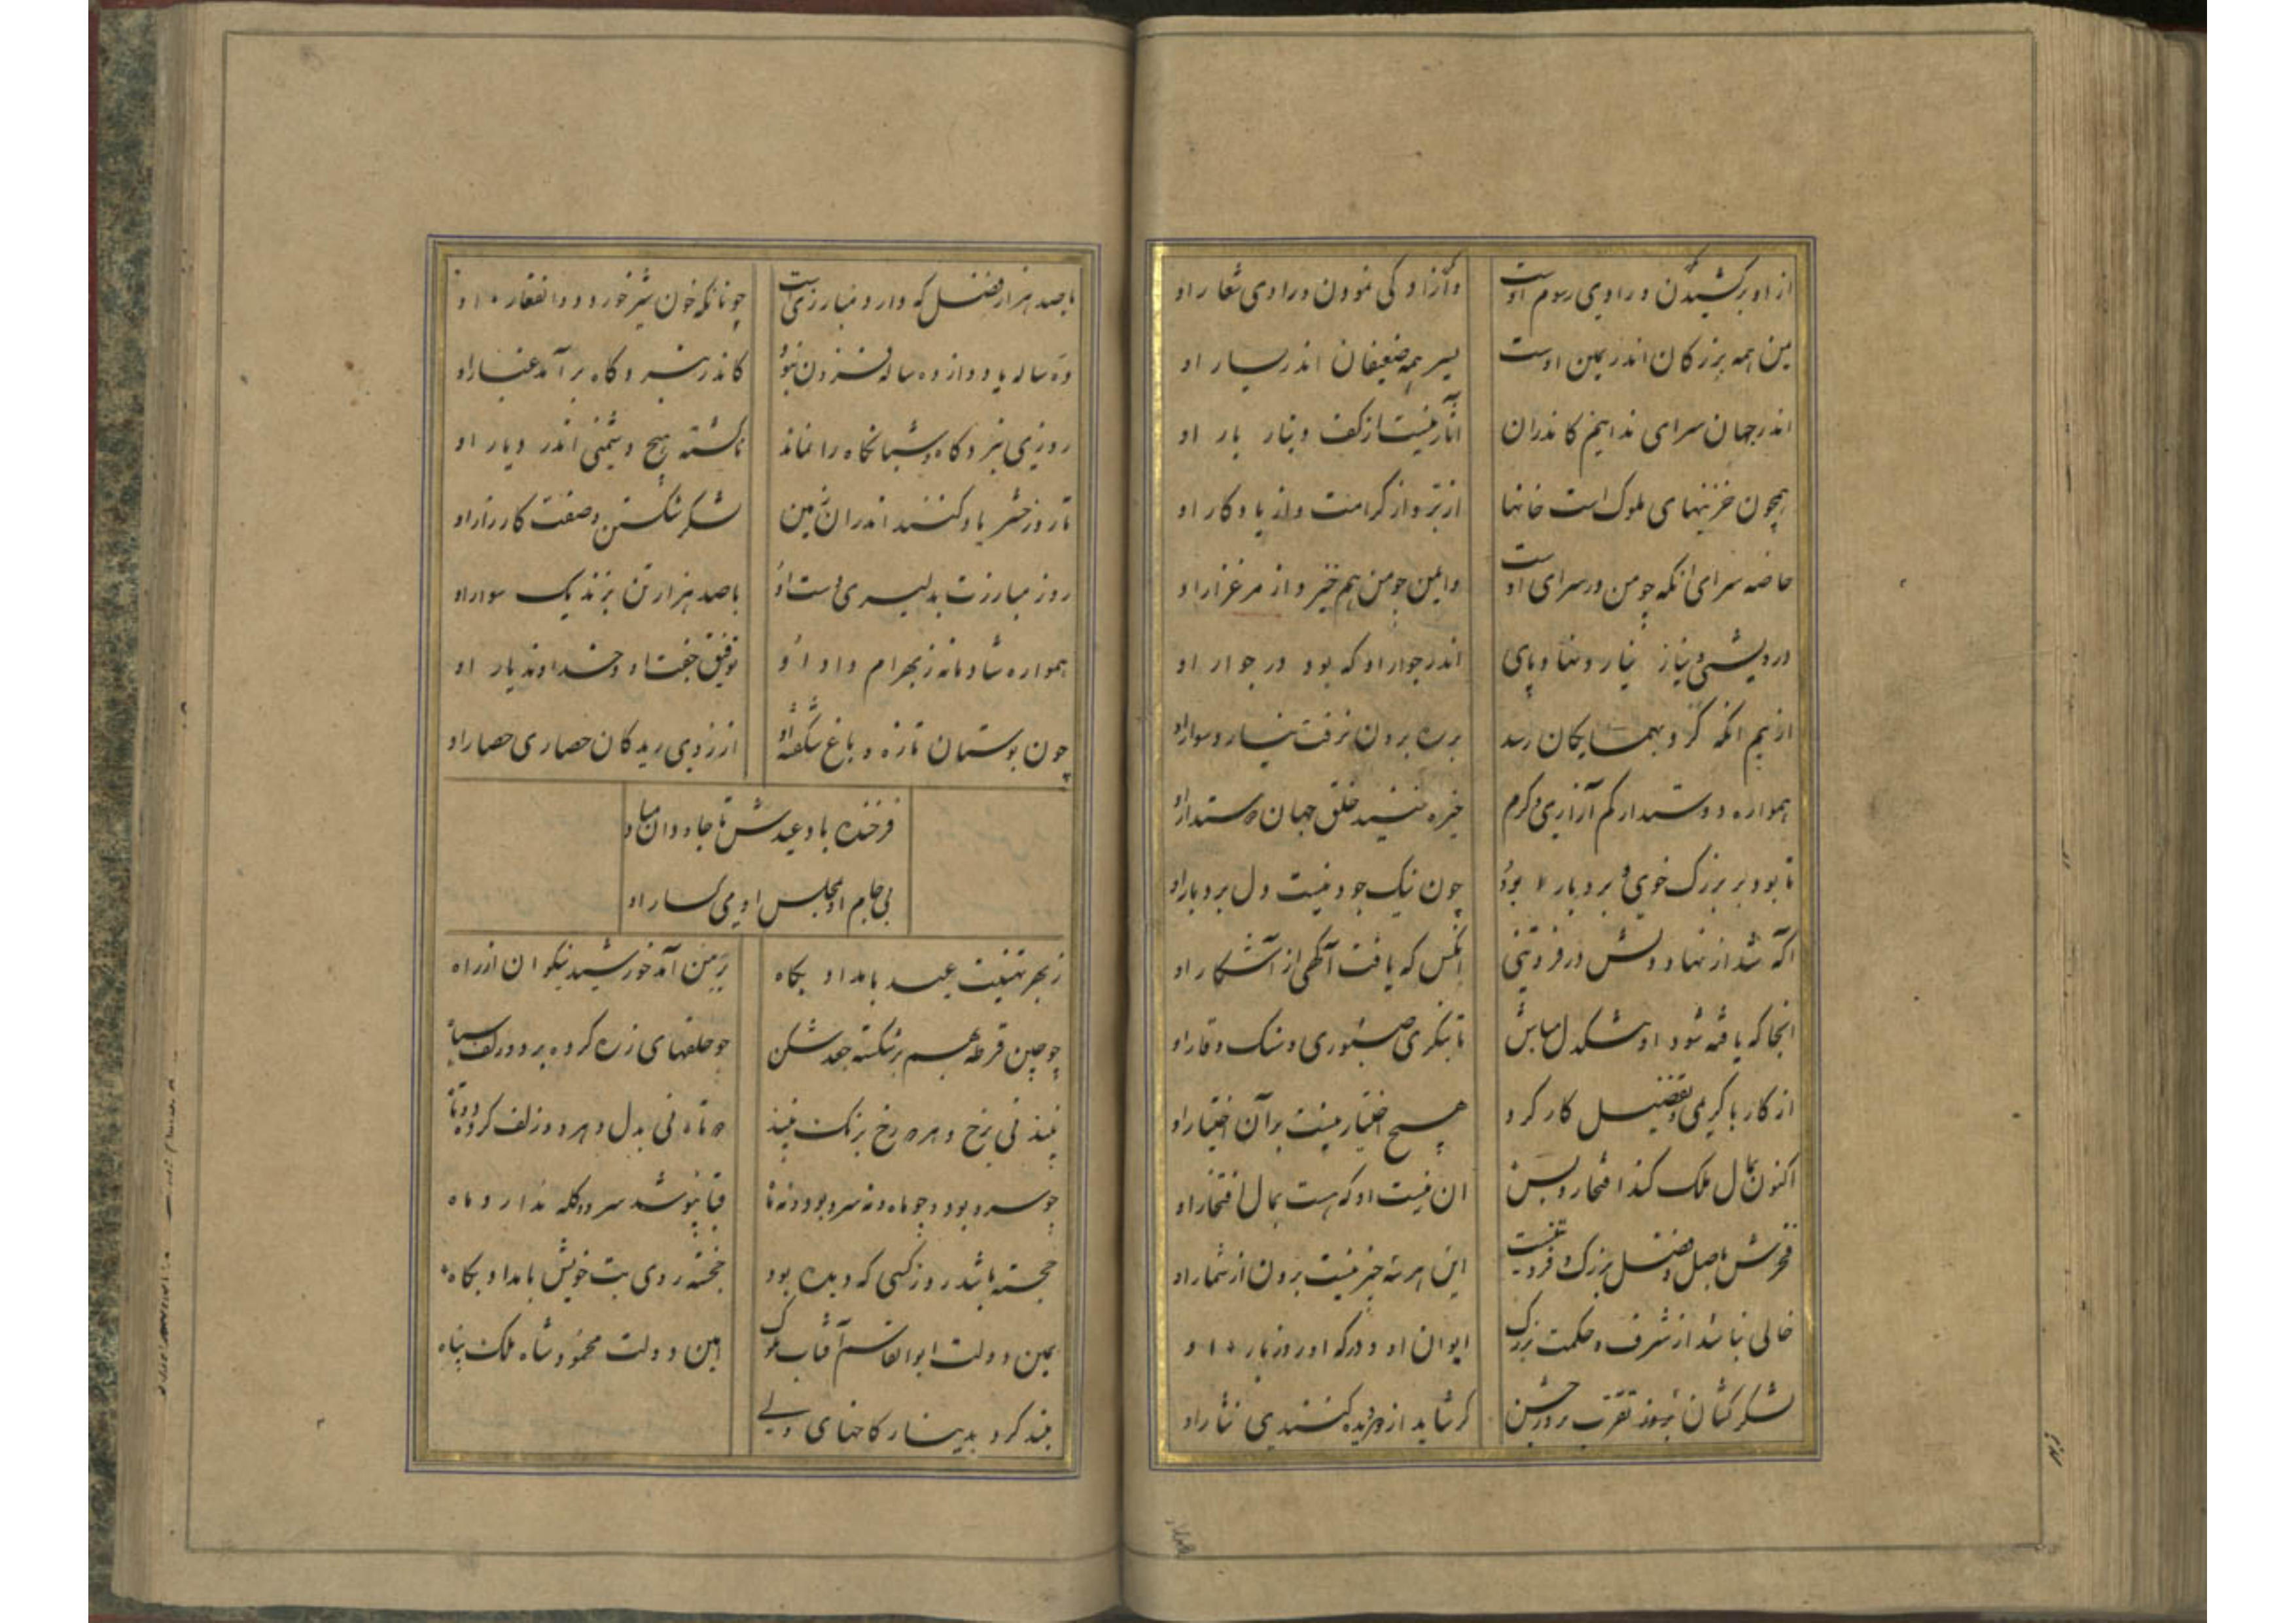 از او برکشیدن و رادی رسوم اوست
وآزادگی نمودن و رادی شعار او
یمن همه بزرگان اندر یمین اوست
یسر همه ضعیفان اندر یسار او
اندر جهان سرای ندانیم کاندران
آثار نیست از کف دینار بار او
همچون خزینهای ملوک است خانها
از بر و از کرامت و از یادگار او
خاصه سرای آنکه چو من در سرای اوست
وایمن چو من هم خیز و از مرغزار او
درویشی و نیاز نیارد نهاد پای
اندر جوار او که بود در جوار او
از بیم آنکه گرد بهمسایگان رسد
بر ره برون نرفت سوار او
همواره دوستدار کم آزاری و کرم
خیره نیند خلق جهان دوستدار او
تا بود بر بزرگ خوی و بردبار بود
چون نیک جود نیست دل بردبار او
آگه شد از نهاد دلش در فروتنی
آنکس که یافت آگهی از آشکار او
آنجا که یافه شود او سنگدل مباش
تا بنگری صبوری و سنگ و قار او
از کارها کریمی و تفضیل کار کرد
هیچ اختیار نیست بر آن اختیار او
اکنون بمال ملک کند افتخار و بس
آن نیست او که هست بمال افتخار او
فخرش باصل و فضل بزرگ و فروتنیست
این هر سه چیز نیست برون از شمار او
خالی نباشد از شرف و حکمت بزرگ
ایوان او و درگه او روز بار او
لشکر کشان تقرب روز جشن
گر شاید از دو دیده کنندی نثار او
با صد هزار فضل که دارد مبارزیست
چونانکه خون شیر خورد ذوالفقار او
ده ساله یا دوازده ساله فزون نبود
کاندر نبردگاه برآمد غبار او
روزی نبردگاه و شبانگاه را نماند
ناکشته هیچ دشمنی اندر دیار او
تا روز حشر یاد کنند اندران زمین
لشکر شکستن و صفت کارزار او
روز مبارزت بدلیری دست او
با صد هزار تن بزند یک سوار او
همواره شادمانه ز بهرام داد او
توفیق جفت او و خداوند یار او
چون بوستان تازه و باغ شکفته او
از روی ریدکان حصاری حصار او
فرخنده باد عیدش تا جاودان مباد
بی جام او و مجلس او می گسار او
ز بهر تهنیت عید بامداد بگاه
بر من آمد خورشید نیکوان از راه
چو چین قرطه بهم بر شکسته جعد شکن
چو حلقهای زره کرده بر دو زلف سیاه
نبیذ نی برخ و هر دو رخ برنگ نبیذ
دو تاه نی بدل و هر دو زلف کرده دو تاه
چو سرو بود و چو ماه و نه سرو بود و نه ماه
قبا نپوشد سرو و کله ندارد ماه
خجسته باشد روز کسی که دیده بود
خجسته روی بت خویش بامداد بگاه
یمین دولت ابوالقاسم آفتاب ملوک
امین دولت محمود شاه ملک پناه
بلند کرد بدینار کاخهای ولی